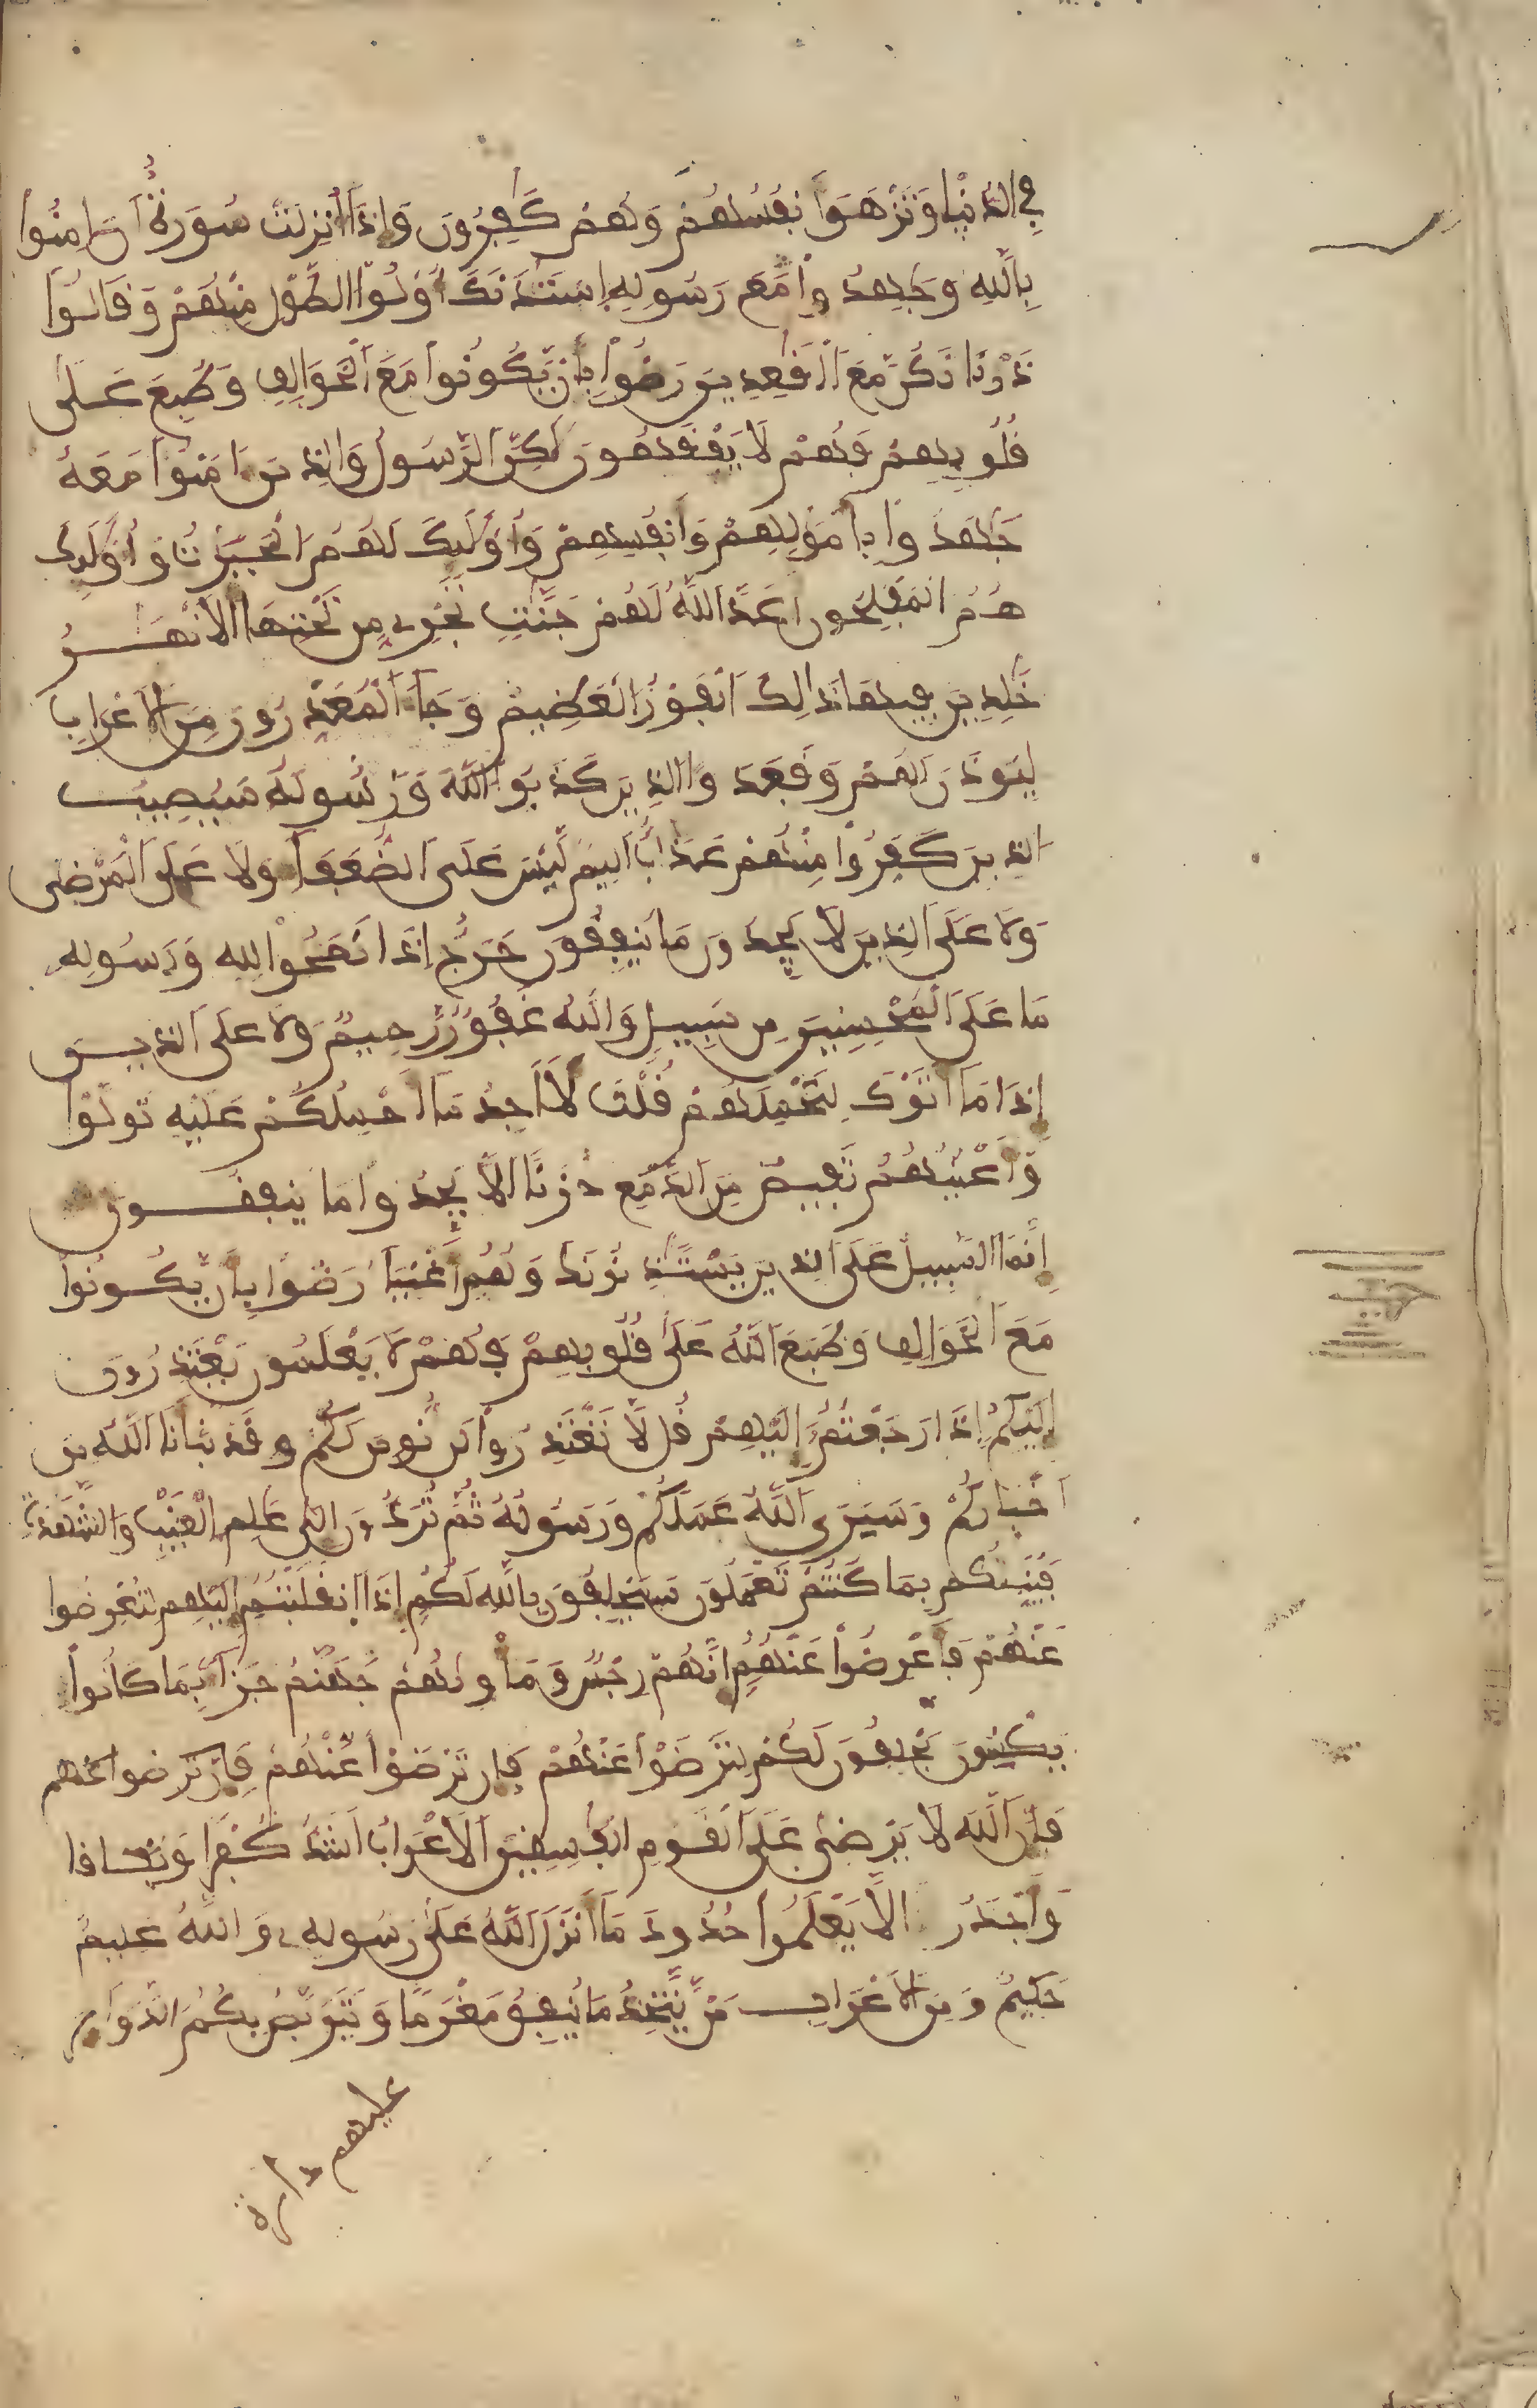 في الدنيا وتزهق أنفسهم وهم كفرون وإذا أنزلت سورة أن امنوا
بالله وجهدوا مع رسوله استئذنك أولوا الطول منهم وقالوا
ذرنا نكن مع القعدين رضوا بأن يكونوا مع الخوالف وطبع على
قلوبهم فهم لا يفقهون لكن الرسول والذين امنوا معه
جهدوا بأمولهم وأنفسهم وأولئك لهم الخيرت وأولئك
هم المفلحون أعد الله لهم جنت تجري من تحتها الأنهر
خلدين فيها ذلك الفوز العظيم وجاء المعذرون من الأعراب
ليوذن لهم وقعد الذين كذبوا الله ورسوله سيصيب
الذين كفروا منهم عذاب أليم ليس على الضعفاء ولا على المرضى
ولا على الذين لا يجدون ما ينفقون حرج إذا نصحوا لله ورسوله
ما على المحسنين من سبيل والله غفور رحيم ولا على الذين
إذا ما أتوك لتحملهم قلت لا أجد ما أحملكم عليه تولوا
وأعينهم تفيض من الدمع حزنا ألا يجدوا ما ينفقون
إنما السبيل على الذين يستئذنونك وهم أغنياء رضوا بأن يكونوا
مع الخوالف وطبع الله على قلوبهم فهم لا يعلمون يعتذرون
إليكم إذا رجعتم إليهم قل لا تعتذروا لن نومن لكم قد نبأنا الله من
أخباركم وسيرى الله عملكم ورسوله ثم تردون إلى علم الغيب والشهدة
فينبئكم بما كنتم تعملون سيحلفون بالله لكم إذا انقلبتم إليهم لتعرضوا
عنهم فأعرضوا عنهم إنهم رجس ومأويهم جهنم جزاء بما كانوا
يكسبون يحلفون لكم لترضوا عنهم فإن ترضوا عنهم فإن ترضوا عنهم
فإن الله لا يرضى على القوم الفسقين الأعراب أشد كفرا ونفاقا
وأجدر ألا يعلموا حدود ما أنزل الله على رسوله والله عليم
حكيم ومن الأعراب من يتخذ ما ينفق مغرما ويتربص بكم الدوائر
عليهم دائرة